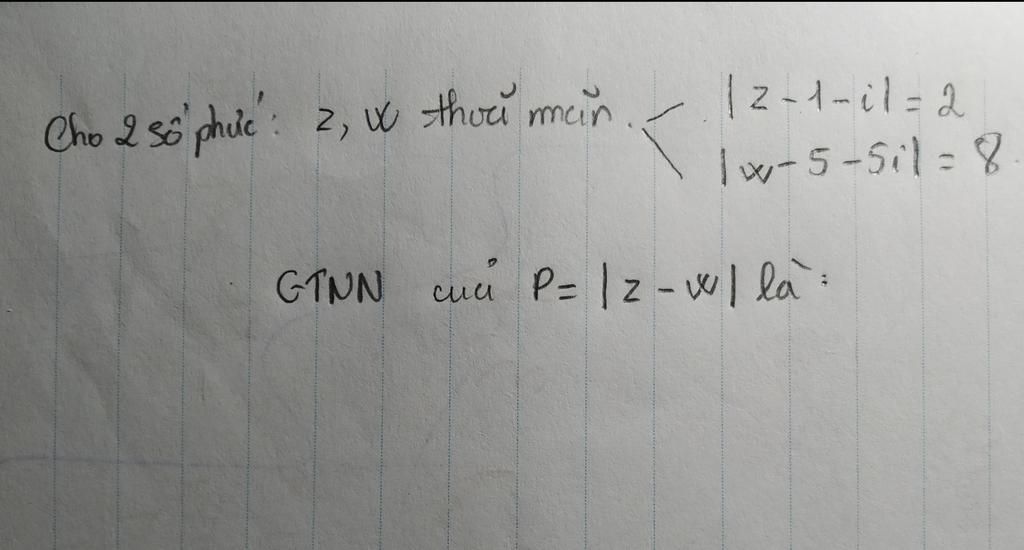 Cho 2 số phức: z, w thoả mãn. |z-1-i| = 2
|w-5-5i| = 8.
GTNN của P = |z-w| là: